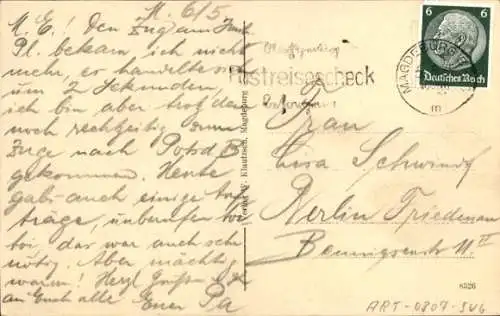 M. 6/5
M. E.! Den Zug am
Pl. bekam ich nicht
mehr, es handelte sich
um 2 Sekunden,
ich bin aber trotzdem
noch rechtzeitig zum
Zuge nach Potsd. B.
gekommen. Heute
gab's auch einige Auf-
träge, unberufen toi
toi, das war auch sehr
nötig. Aber mächtig
warm! Herzl. Grüße
an Euch alle Euer Pa
Verlag W. Klautzsch, Magdeburg
Postreisescheck
MAGDEBURG
m
6 6
Deutsches Reich
Frau
Luisa Schwindt
Berlin Friedenau
Bennigsenstr. 11 II
8326
ART-0807-5U6